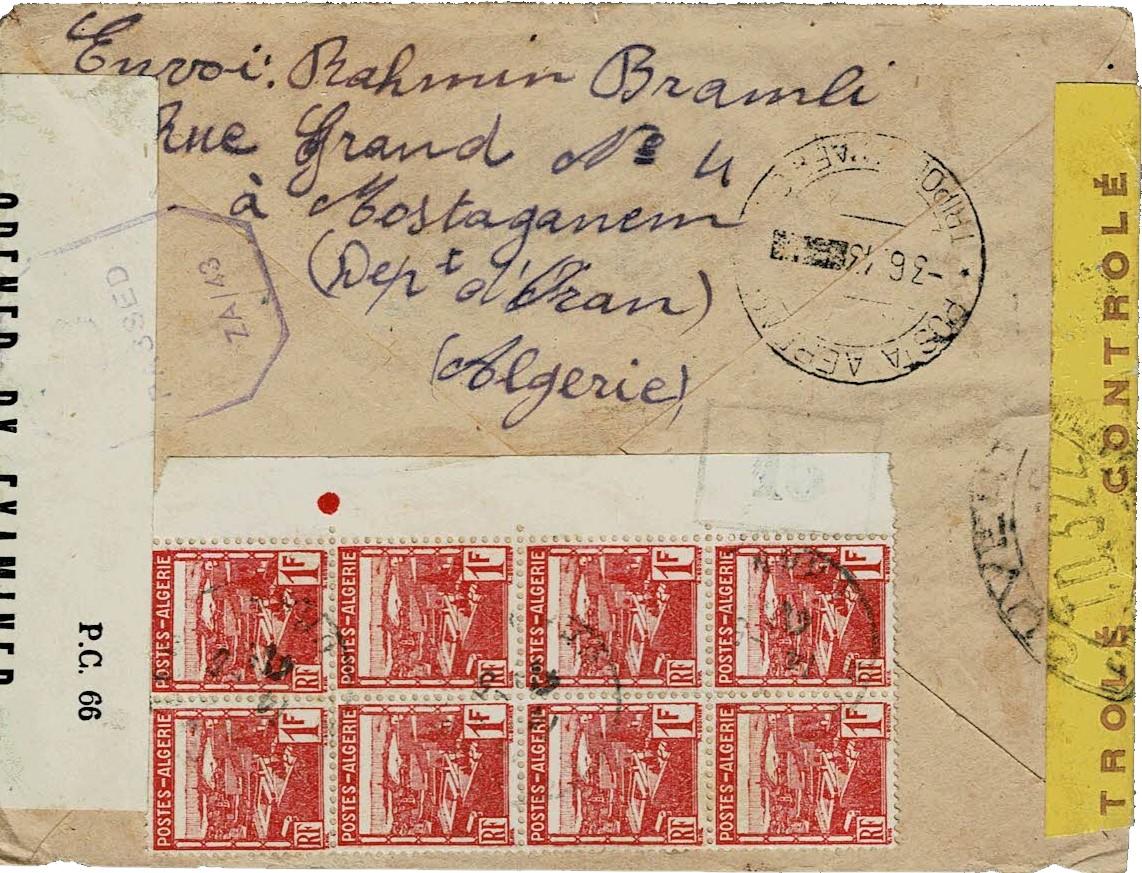 Envoi: Rahmin Bramli
Rue Grand Nº 4
à Mostaganem
(Depᵗ d'Oran)
(Algerie)
OPENED BY EXAMINER
P.C. 66
ZA/43
TRIPOLI
-3.6.43
* POSTA AEREA
CONTROLÉ
TROLÉ
POSTES-ALGERIE 1F RF
POSTES-ALGERIE 1F RF
POSTES-ALGERIE 1F RF
POSTES-ALGERIE 1F RF
POSTES-ALGERIE 1F RF
POSTES-ALGERIE 1F RF
POSTES-ALGERIE 1F RF
POSTES-ALGERIE 1F RF